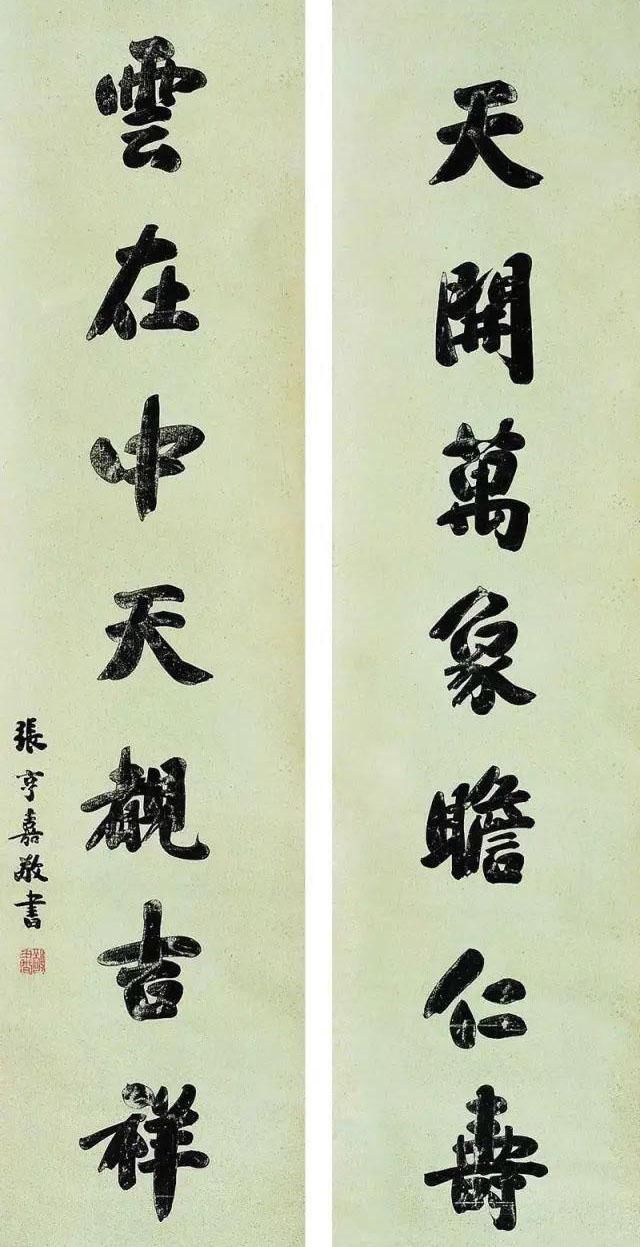 天開萬象瞻仁壽
雲在中天覩吉祥
張亨嘉敬書